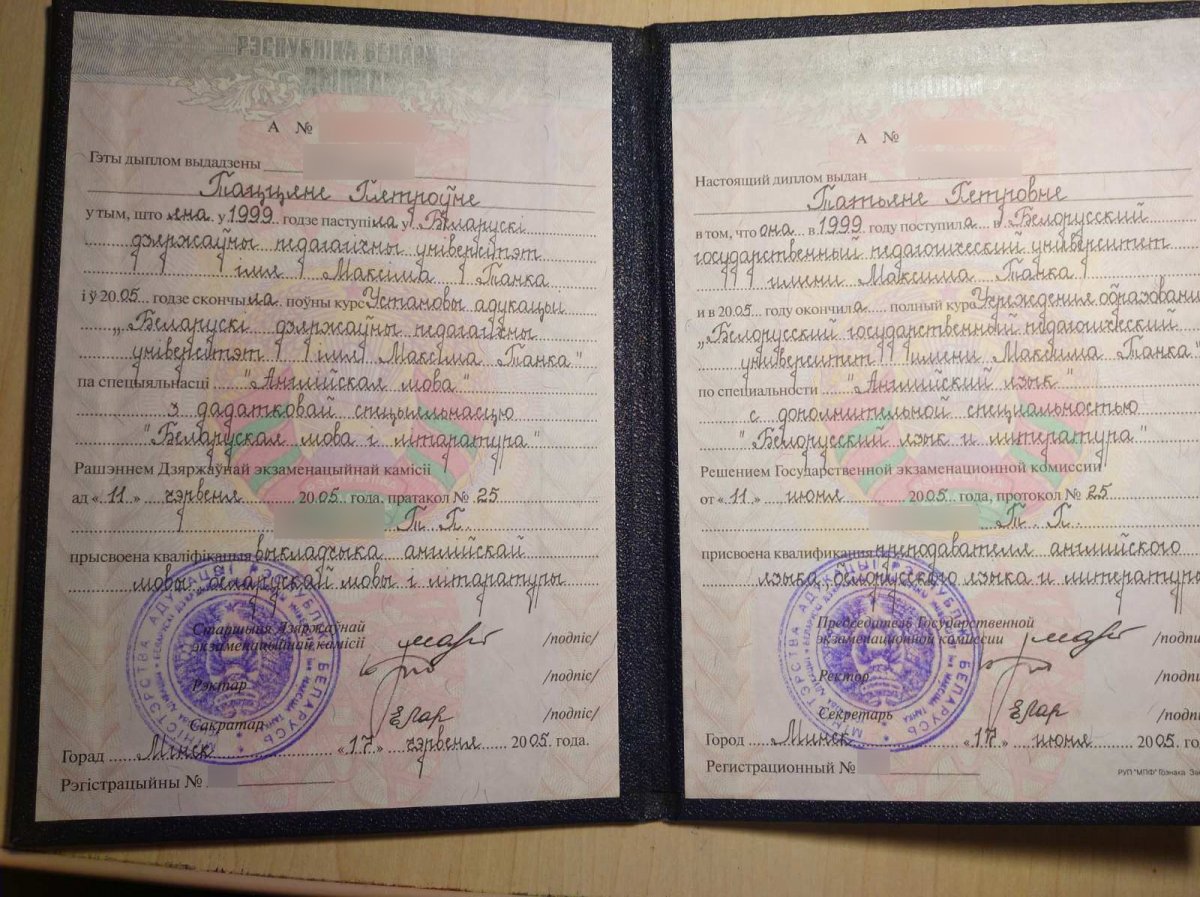 РЭСПУБЛІКА БЕЛАРУСЬ
ДЫПЛОМ
А №
Гэты дыплом выдадзены
Таццяне Пятроўне
у тым, што яна у 1999 годзе паступіла у Беларускі
дзяржаўны педагагічны універсітэт
імя Максіма Танка
і ў 2005 годзе скончыла поўны курс Установы адукацыі
„Беларускі дзяржаўны педагагічны
універсітэт імя Максіма Танка"
па спецыяльнасці "Англійская мова"
з дадатковай спецыяльнасцю
"Беларуская мова і літаратура"
Рашэннем Дзяржаўнай экзаменацыйнай камісіі
ад «11» чэрвеня 2005 года, пратакол № 25
Т. П.
прысвоена кваліфікацыя выкладчыка англійскай
мовы, беларускай мовы і літаратуры
Старшыня Дзяржаўнай
экзаменацыйнай камісіі
/подпіс/
Рэктар
/подпіс/
Сакратар
/подпіс/
Горад Мінск «17» чэрвеня 2005 года.
Рэгістрацыйны №
МІНІСТЭРСТВА АДУКАЦЫІ РЭСПУБЛІКІ БЕЛАРУСЬ
А №
Настоящий диплом выдан
Татьяне Петровне
в том, что она в 1999 году поступила в Белорусский
государственный педагогический университет
имени Максима Танка
и в 2005 году окончила полный курс Учреждения образовани
„Белорусский государственный педагогический
университет имени Максима Танка"
по специальности "Английский язык"
с дополнительной специальностью
"Белорусский язык и литература"
Решением Государственной экзаменационной комиссии
от «11» июня 2005 года, протокол № 25
Т. П.
присвоена квалификация преподавателя английского
языка, белорусского языка и литератур
Председатель Государственной
экзаменационной комиссии
/подпи
Ректор
/подпи
Секретарь
/подпи
Город Минск «17» июня 2005 го
Регистрационный №
МІНІСТЭРСТВА АДУКАЦЫІ РЭСПУБЛІКІ БЕЛАРУСЬ
РУП "МПФ" Гознака Зак